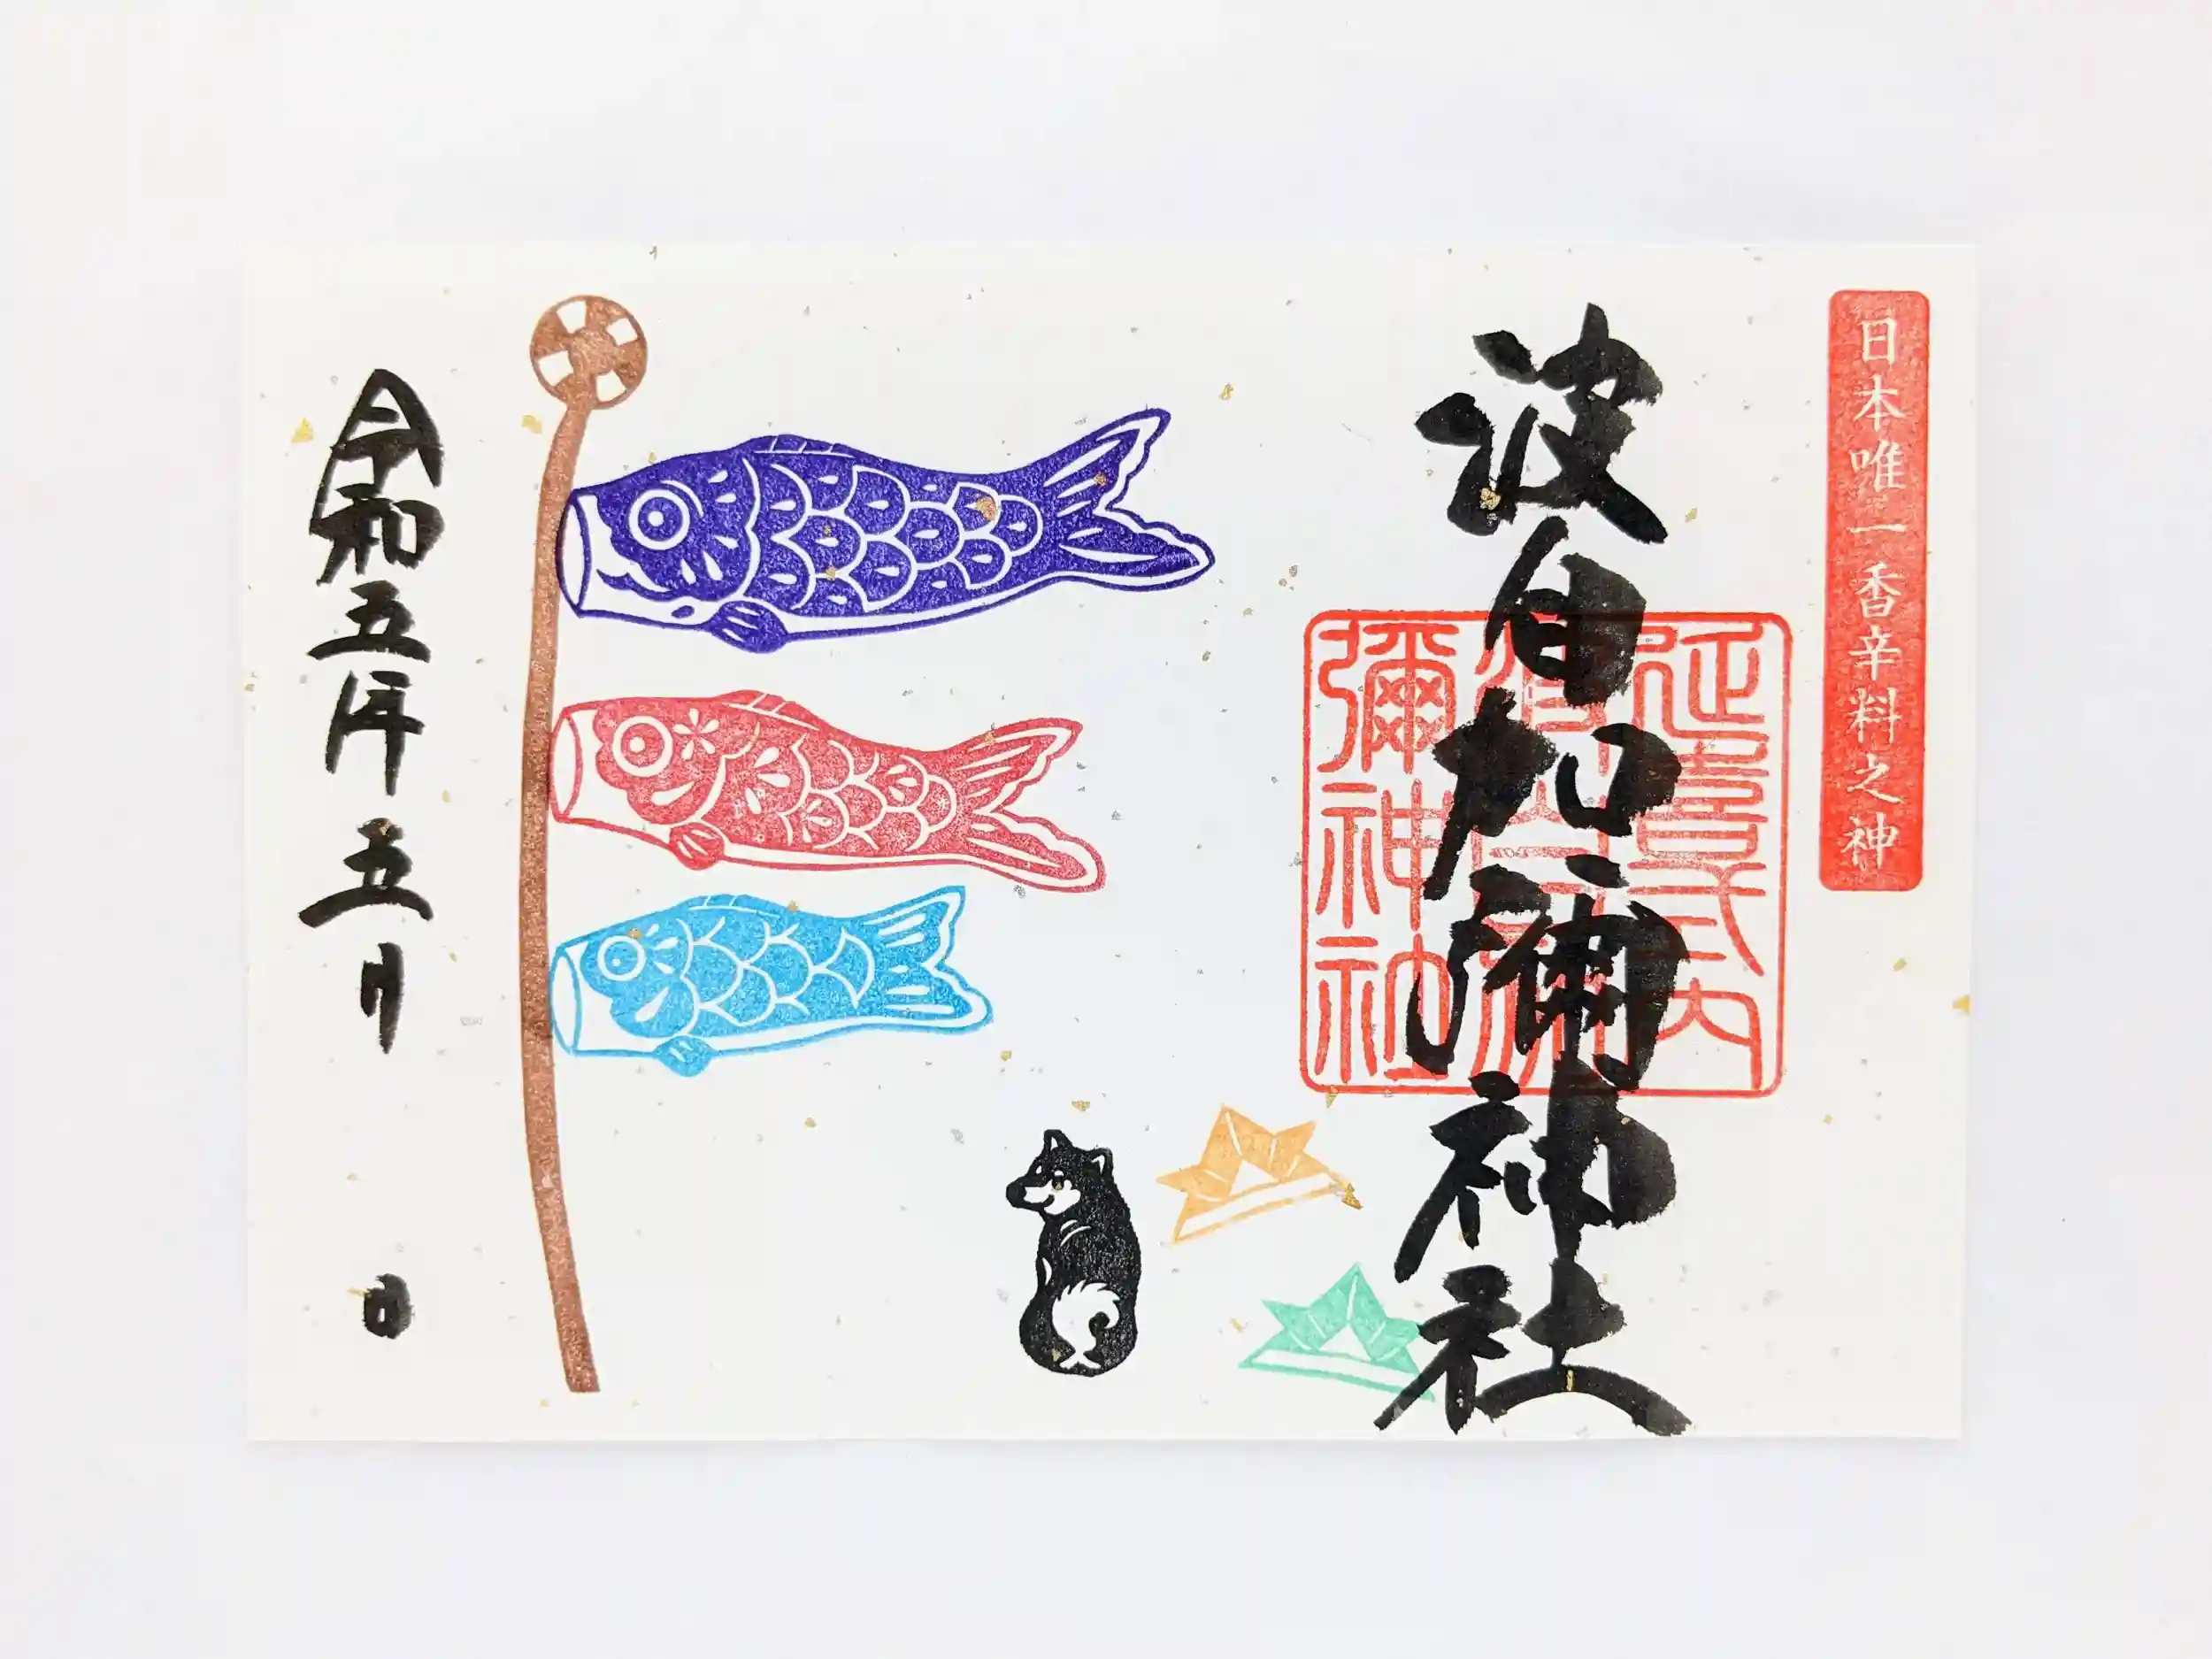 日本唯一香辛料之神
波自加彌神社
延喜式内
彌神社
令和五年五月 日